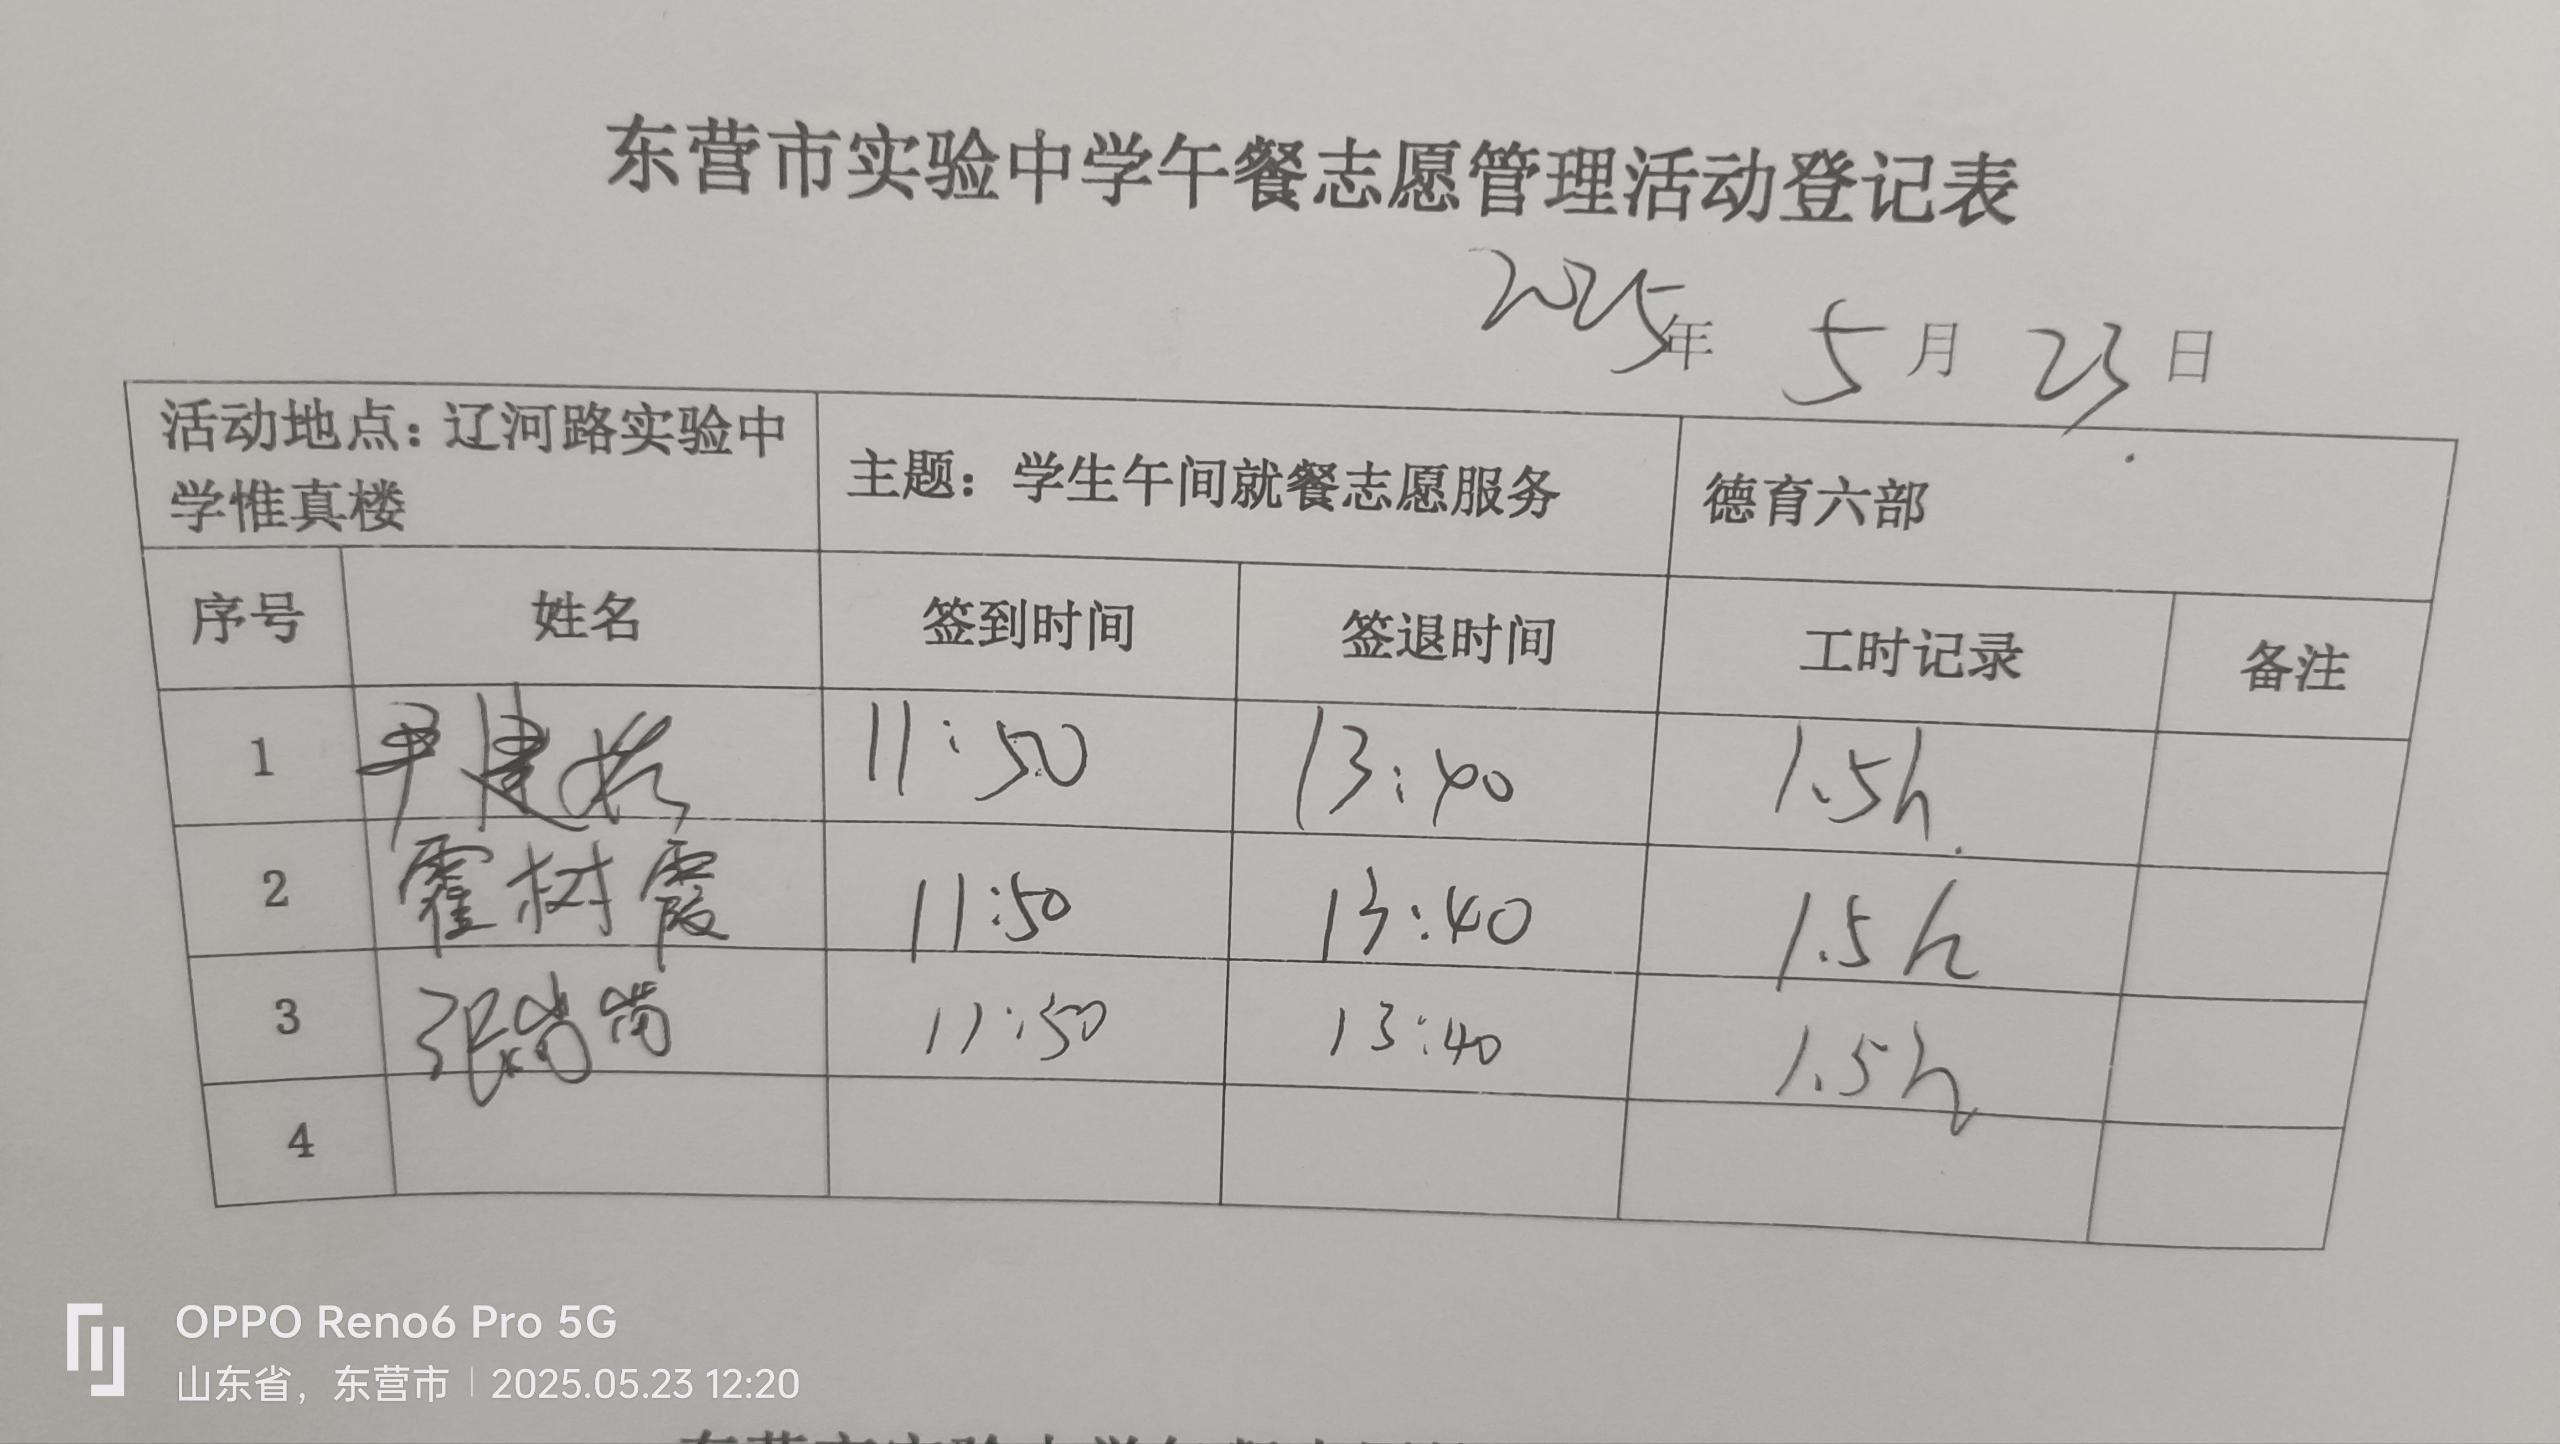 东营市实验中学午餐志愿管理活动登记表
2025年 5月 23日
活动地点：辽河路实验中学惟真楼 主题：学生午间就餐志愿服务 德育六部
序号 姓名 签到时间 签退时间 工时记录 备注
1 尹建 11:50 13:40 1.5h
2 霍树霞 11:50 13:40 1.5h
3 张尚尚 11:50 13:40 1.5h
4
OPPO Reno6 Pro 5G
山东省，东营市 | 2025.05.23 12:20